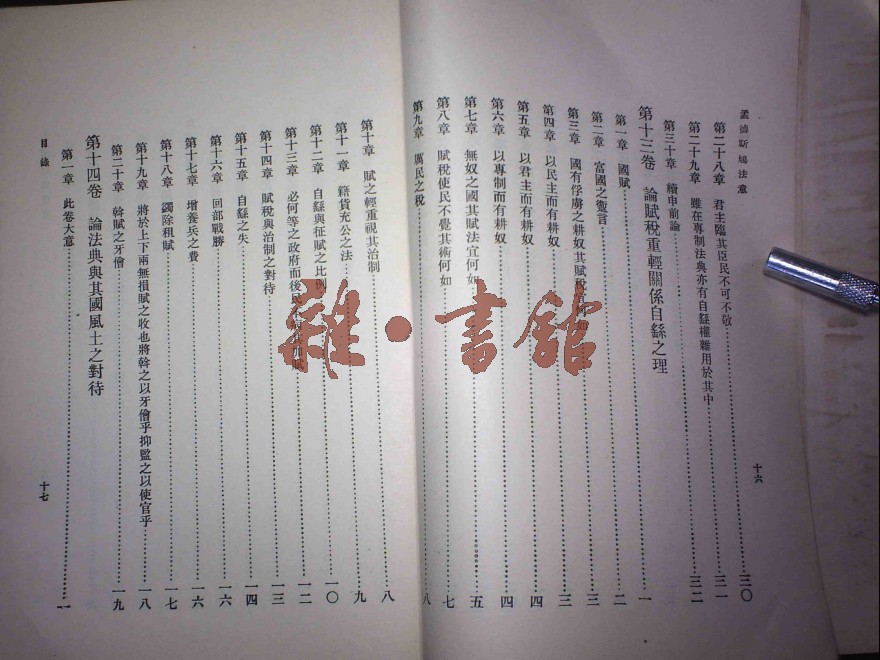 孟德斯鳩法意
第二十八章 君主臨其臣民不可不敬 三〇
第二十九章 雖在專制法典亦有自繇權雜用於其中 三一
第三十章 續申前論 三二
第十三卷 論賦稅重輕關係自繇之理 一
第一章 國賦 二
第二章 富國之微言 三
第三章 國有俘虜之耕奴其賦稅宜何如 三
第四章 以民主而有耕奴 四
第五章 以君主而有耕奴 四
第六章 以專制而有耕奴 五
第七章 無奴之國其賦法宜何如 五
第八章 賦稅使民不覺其術何如 七
第九章 厲民之稅 八
十六
第十章 賦之輕重視其治制 八
第十一章 籍貨充公之法 九
第十二章 自繇與征賦之比例 一〇
第十三章 必何等之政府而後民 加賦 一二
第十四章 賦稅與治制之對待 一三
第十五章 自繇之失 一四
第十六章 回部戰勝 一六
第十七章 增養兵之費 一六
第十八章 蠲除租賦 一七
第十九章 將於上下兩無損賦之收也將斡之以牙儈乎抑監之以使官乎 一八
第二十章 斡賦之牙儈 一九
第十四卷 論法典與其國風土之對待
第一章 此卷大意 一
目錄
十七
雜·書館